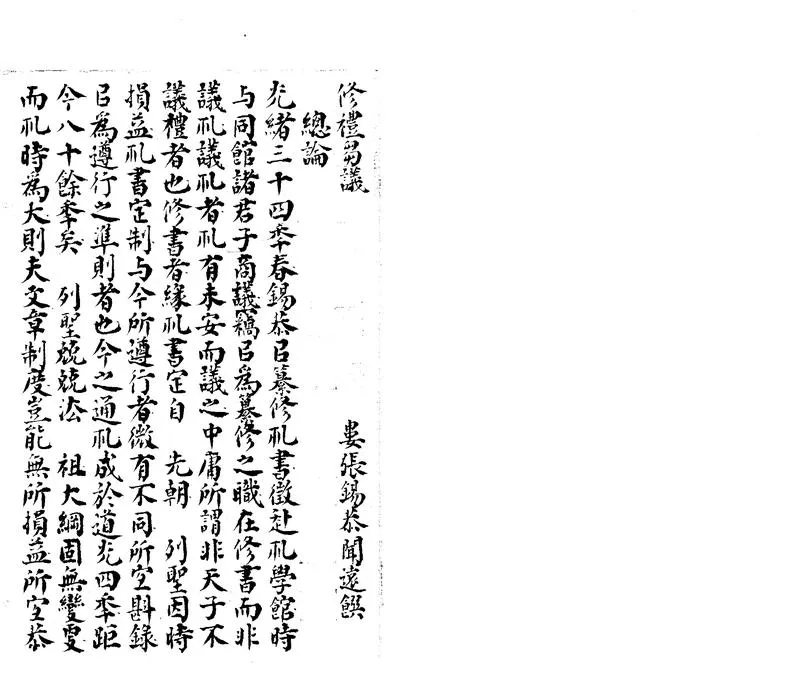 修禮芻議
婁張錫恭聞遠饌
總論
光緒三十四秊春錫恭㠯纂修礼書徵赴礼學館時
与同館諸君子商議竊㠯為纂修之職在修書而非
議礼議礼者礼有未安而議之中庸所謂非天子不
議禮者也修書者緣礼書定自　先朝　列聖因時
損益礼書定制与今所遵行者微有不同所宜斟錄
㠯為遵行之準則者也今之通礼成於道光四秊距
今八十餘秊矣　列聖兢兢法　祖大綱固無變更
而礼時為大則夫文章制度豈能無所損益所宜恭